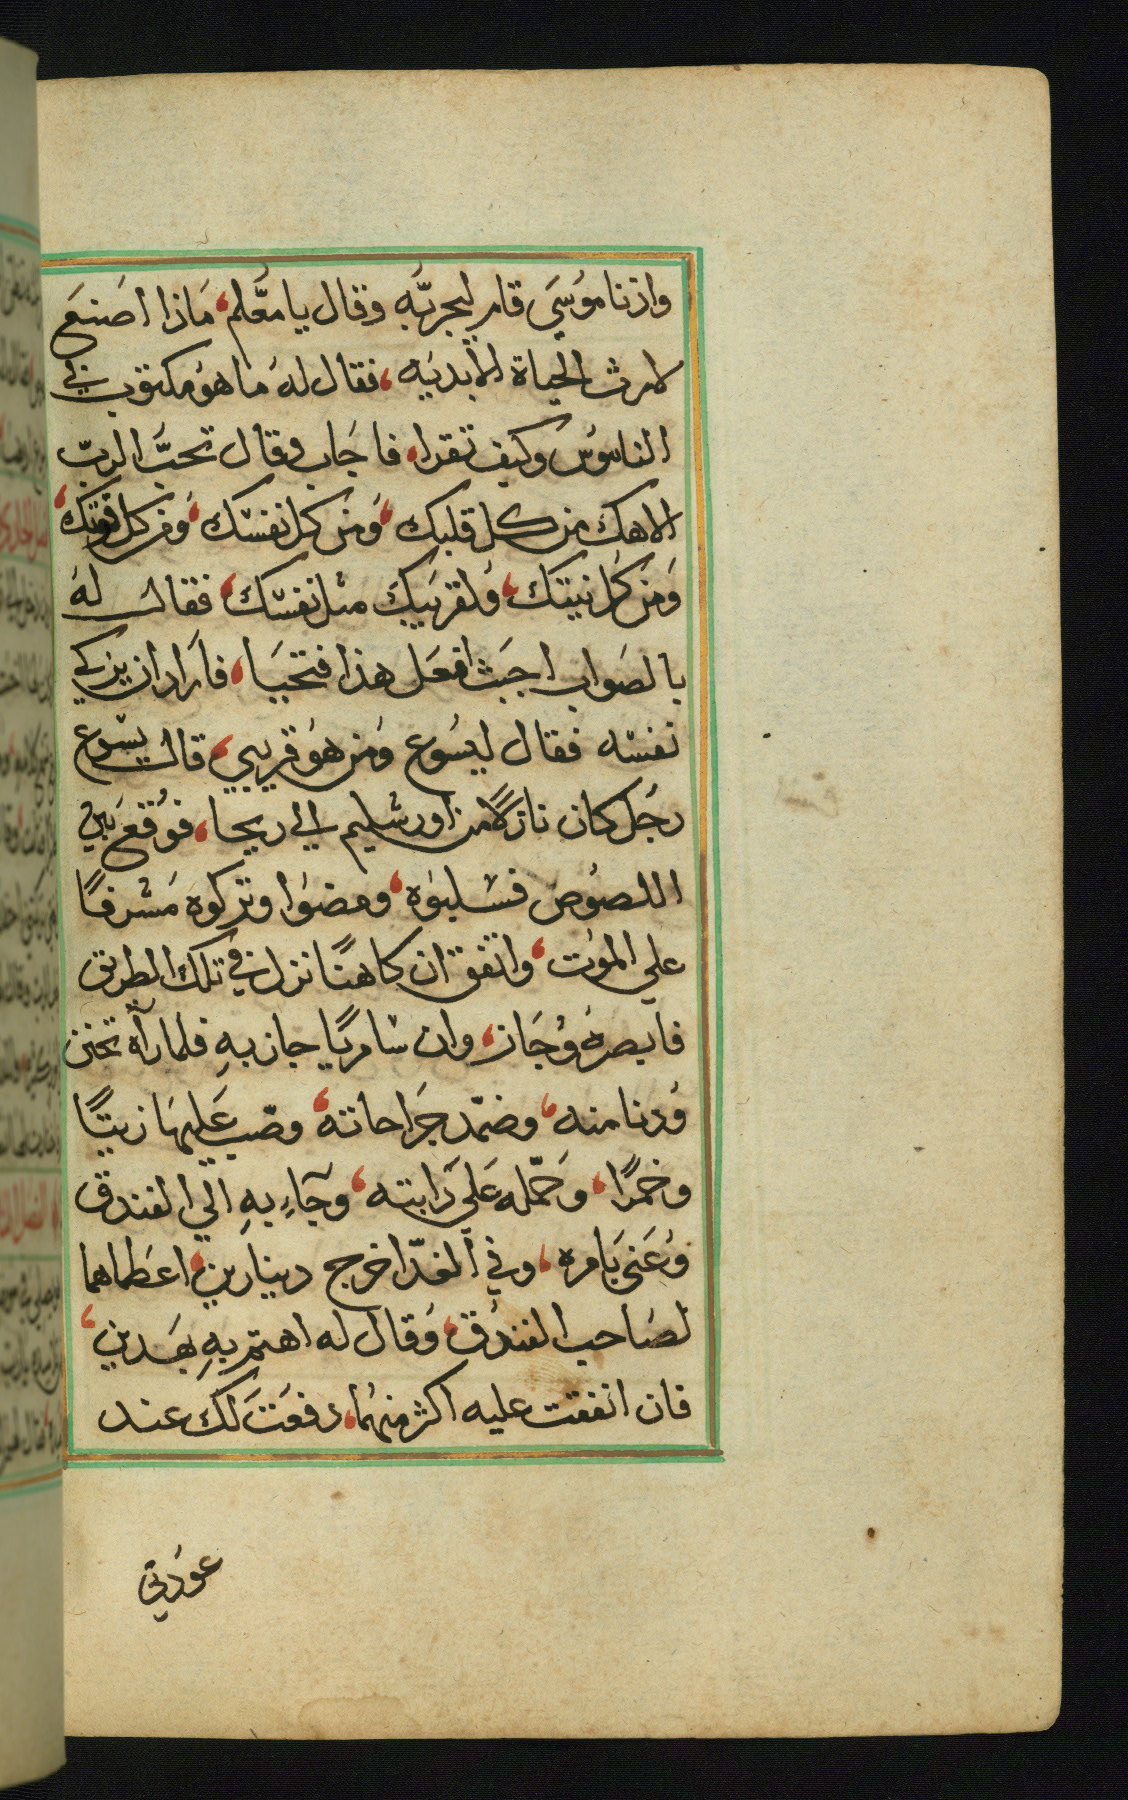 واذنا موسَي قام ليجربّه وقال يا معَّلم، مَاذا اصَنعَ
لارث الحياة الأبديَه، فقال لهَ ما هوُ مكتوب في
الناموُس وكيف تقرا، فاجَاب وقال تحبَّ الربّ
الاهك من كل قلبك، وَمنَ كل نفسْك، وَمن كل قوتك،
وَمنَ كل نيتك، وَلقريَبك مثل نفسْك، فقال لهَ
بالصَواب اجبَت افعَل هذا فتحيَا، فارَاد ان يزكي
نفسْه فقال ليسُوع وَمن هوُ قريبي، قال يسْوع
رجُل كان نازلاً من اورشليم الي ريحا، فوُقعَ بيَن
اللصُوص فسْلبوَه، ومضوَا وتركوه مَشرفاً
علي الموُت، واتفق ان كاهناً نزل في تلك الطريق
فابصرهَ وُجَاز، وان سْامريًا جاز بهِ فلما رآه تحنن
وُدنا منه، وضمّد جَراحاته، وصّب عَليهَا زيتاً
وخمرًا، وَحَمّله عَلي دَابته، وجَآءِ بهِ الَي الفندق
وُعَنيَ بَامره، وفي الغدّ اخرج دينارين، اعَطاهما
لصَاحب الفندُق، وَقال له اهتم بهِ بهَدين،
فان انفقت عليه اكثر منهُما، دفعَتَ لك عند
عوُدتي